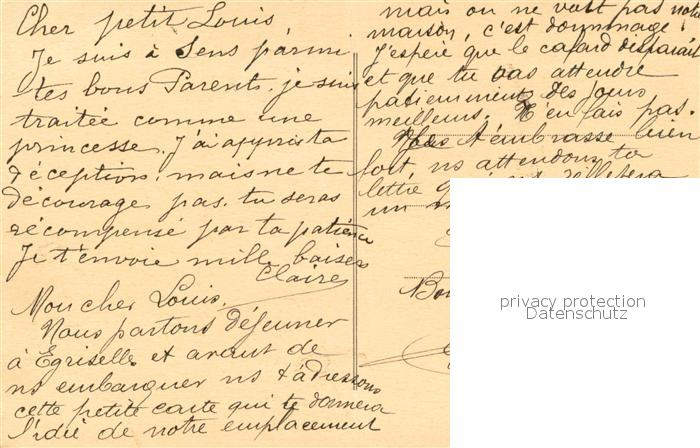 Cher petit Louis,
Je suis à Sens parmi
tes bons Parents, je suis
traitée comme une
princesse. J'ai appris ta
déception, mais ne te
décourage pas, tu seras
récompensé par ta patience
Je t'envoie mille baisers
Claire
Mon cher Louis.
Nous partons déjeuner
à Egriselle et avant de
ns embarquer ns t'adressons
cette petite carte qui te donnera
l'idée de notre emplacement
mais on ne voit pas notre
maison, c'est dommage!
J'espère que le cafard disparait
et que tu vas attendre
patiemment des jours
meilleurs. N'en fais pas.
t'embrasse bien
fort, ns attendons ta
lettre
un
Bon
privacy protection
Datenschutz